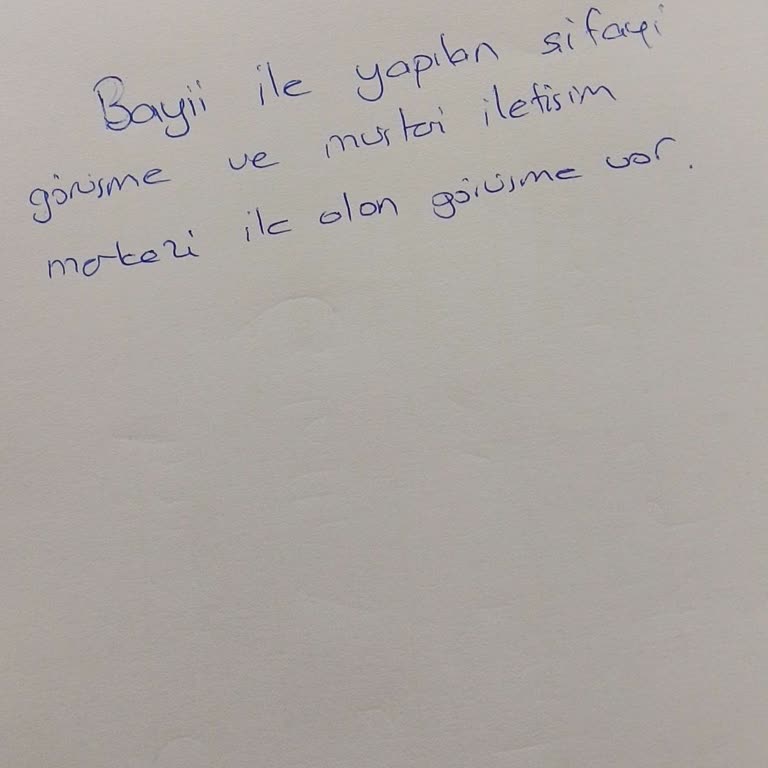 Bayii ile yapılan sifayi
görüsme ve musteri iletisim
merkezi ile olan görüsme var.